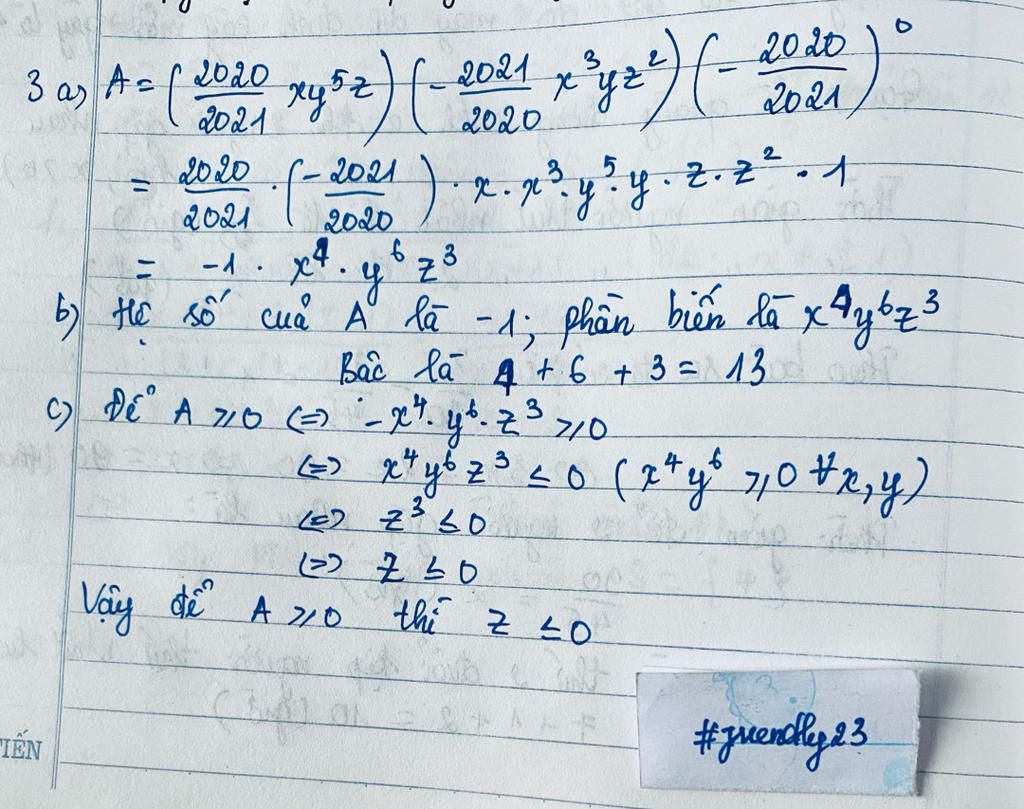 3 a) A = (2020/2021 xy⁵z) (- 2021/2020 x³yz²) (- 2020/2021)⁰
= 2020/2021 · (-2021/2020) · x · x³ · y⁵ · y · z · z² · 1
= -1 · x⁴ · y⁶ z³
b) Hệ số của A là -1; phần biến là x⁴y⁶z³
Bậc là 4 + 6 + 3 = 13
c) Để A ⩾ 0 (=) -x⁴ · y⁶ · z³ ⩾ 0
(=) x⁴y⁶z³ ≤ 0 (x⁴y⁶ ⩾ 0 ∀x, y)
(=) z³ ≤ 0
(=) z ≤ 0
Vậy để A ⩾ 0 thì z ≤ 0
TIẾN